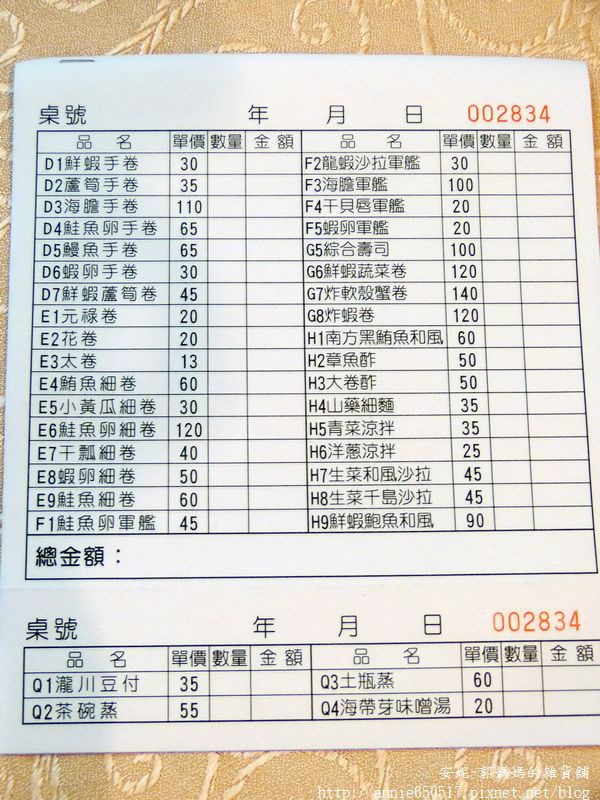 桌號 年 月 日 002834
品名 單價 數量 金額 品名 單價 數量 金額
D1鮮蝦手卷 30 F2龍蝦沙拉軍艦 30
D2蘆筍手卷 35 F3海膽軍艦 100
D3海膽手卷 110 F4干貝唇軍艦 20
D4鮭魚卵手卷 65 F5蝦卵軍艦 20
D5鰻魚手卷 65 G5綜合壽司 100
D6蝦卵手卷 30 G6鮮蝦蔬菜卷 120
D7鮮蝦蘆筍卷 45 G7炸軟殼蟹卷 140
E1元祿卷 20 G8炸蝦卷 120
E2花卷 20 H1南方黑鮪魚和風 60
E3太卷 13 H2章魚酢 50
E4鮪魚細卷 60 H3大卷酢 50
E5小黃瓜細卷 30 H4山藥細麵 35
E6鮭魚卵細卷 120 H5青菜涼拌 35
E7干瓢細卷 40 H6洋蔥涼拌 25
E8蝦卵細卷 50 H7生菜和風沙拉 45
E9鮭魚細卷 60 H8生菜千島沙拉 45
F1鮭魚卵軍艦 45 H9鮮蝦鮑魚和風 90
總金額：
桌號 年 月 日 002834
品名 單價 數量 金額 品名 單價 數量 金額
Q1瀧川豆付 35 Q3土瓶蒸 60
Q2茶碗蒸 55 Q4海帶芽味噌湯 20
安妮-郭媽媽的雜貨舖
http://annie650517.pixnet.net/blog